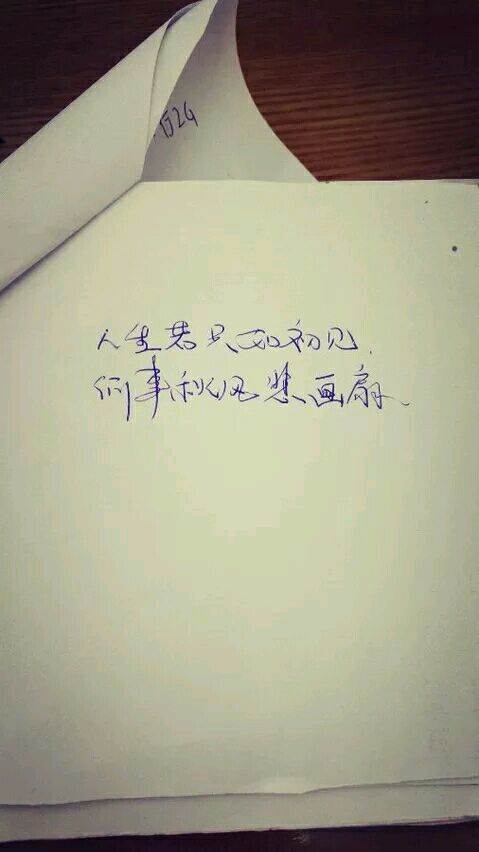 人生若只如初见，
何事秋风悲画扇、